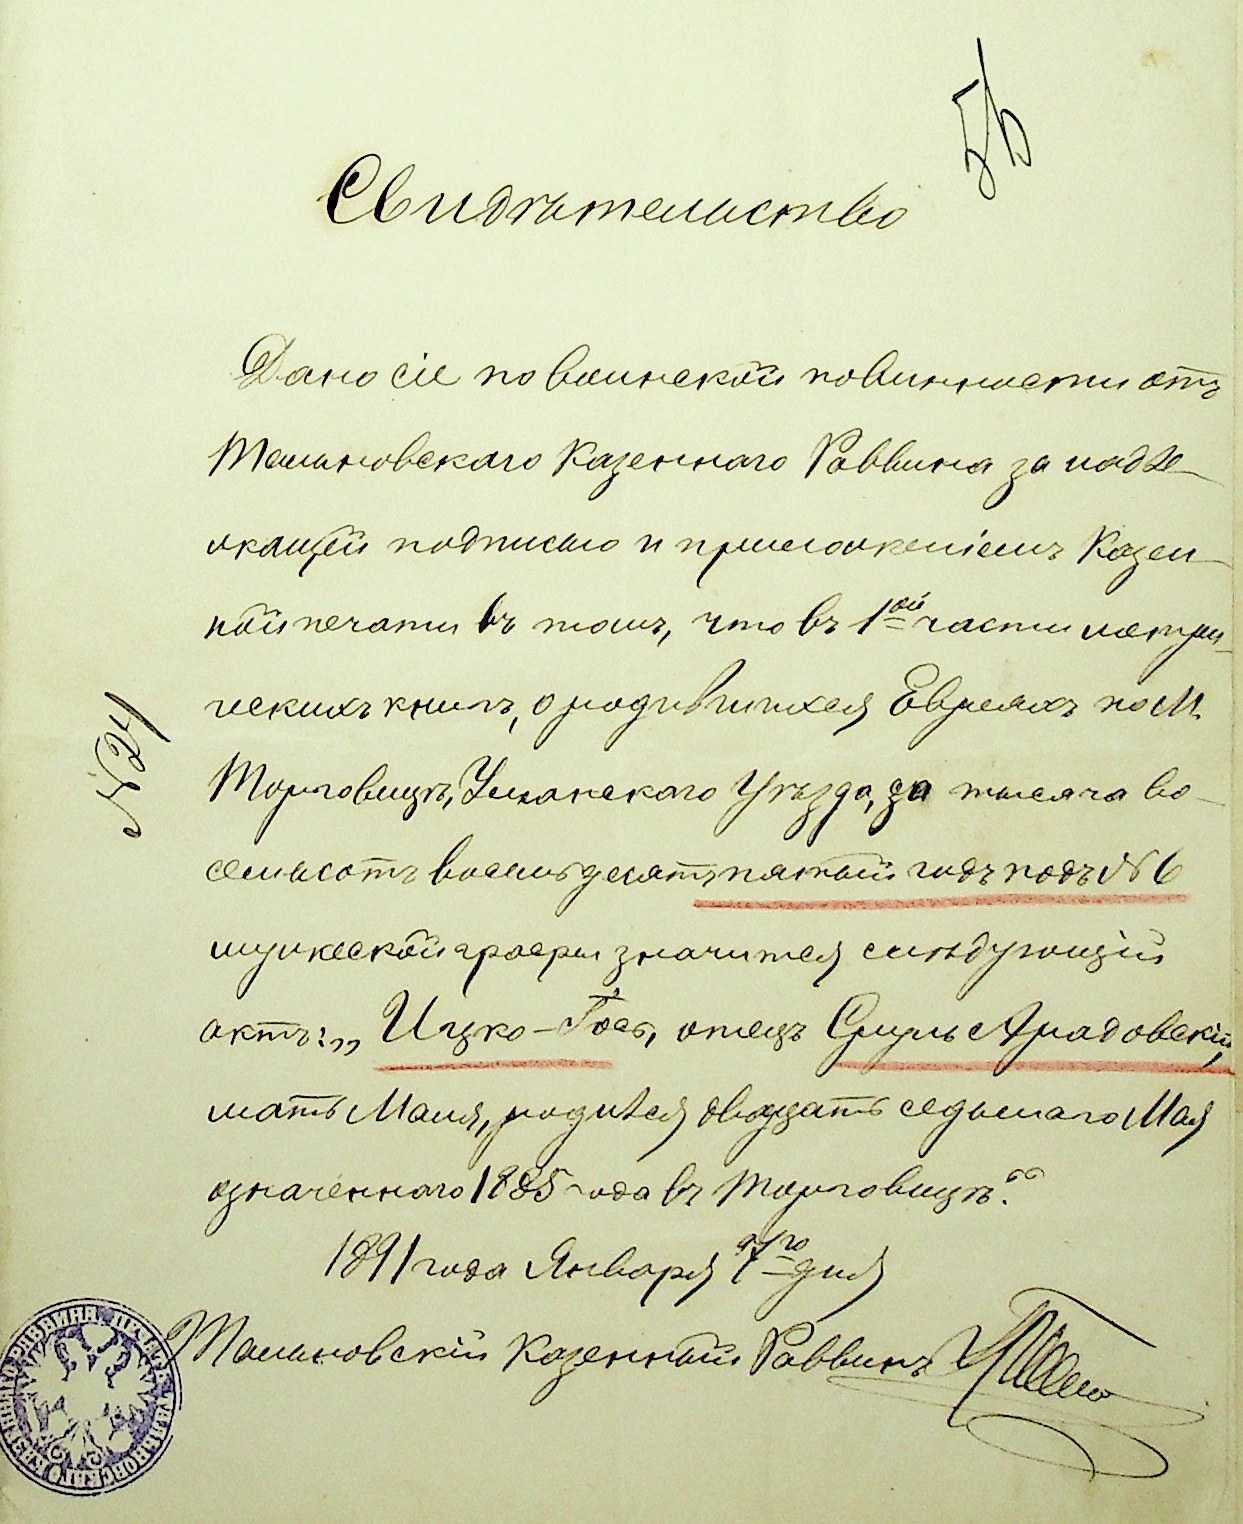 56
Свидѣтельство
Дано сіе по воинской повинности отъ
Тальновскаго Казеннаго Раввина за надле-
жащей подписью и приложеніемъ Казен-
ной печати въ томъ, что въ 1ой части метри-
ческихъ книгъ, о родившихся Евреяхъ по М.
Торговицѣ, Уманскаго Уѣзда, за тысяча во-
семьсотъ восемьдесятъ пятый годъ подъ №6
мужеской графы значится слѣдующій
актъ: „Ицко-Іось, отецъ Сруль Арадовскій,
мать Маня, родился двадцать седьмаго Мая
означеннаго 1885 года въ Торговицѣ“.
1891 года Января 7го дня
Тальновскій Казенный Раввинъ
№24
ПЕЧАТЬ ТАЛЬНОВСКАГО КАЗЕННАГО РАВВИНА